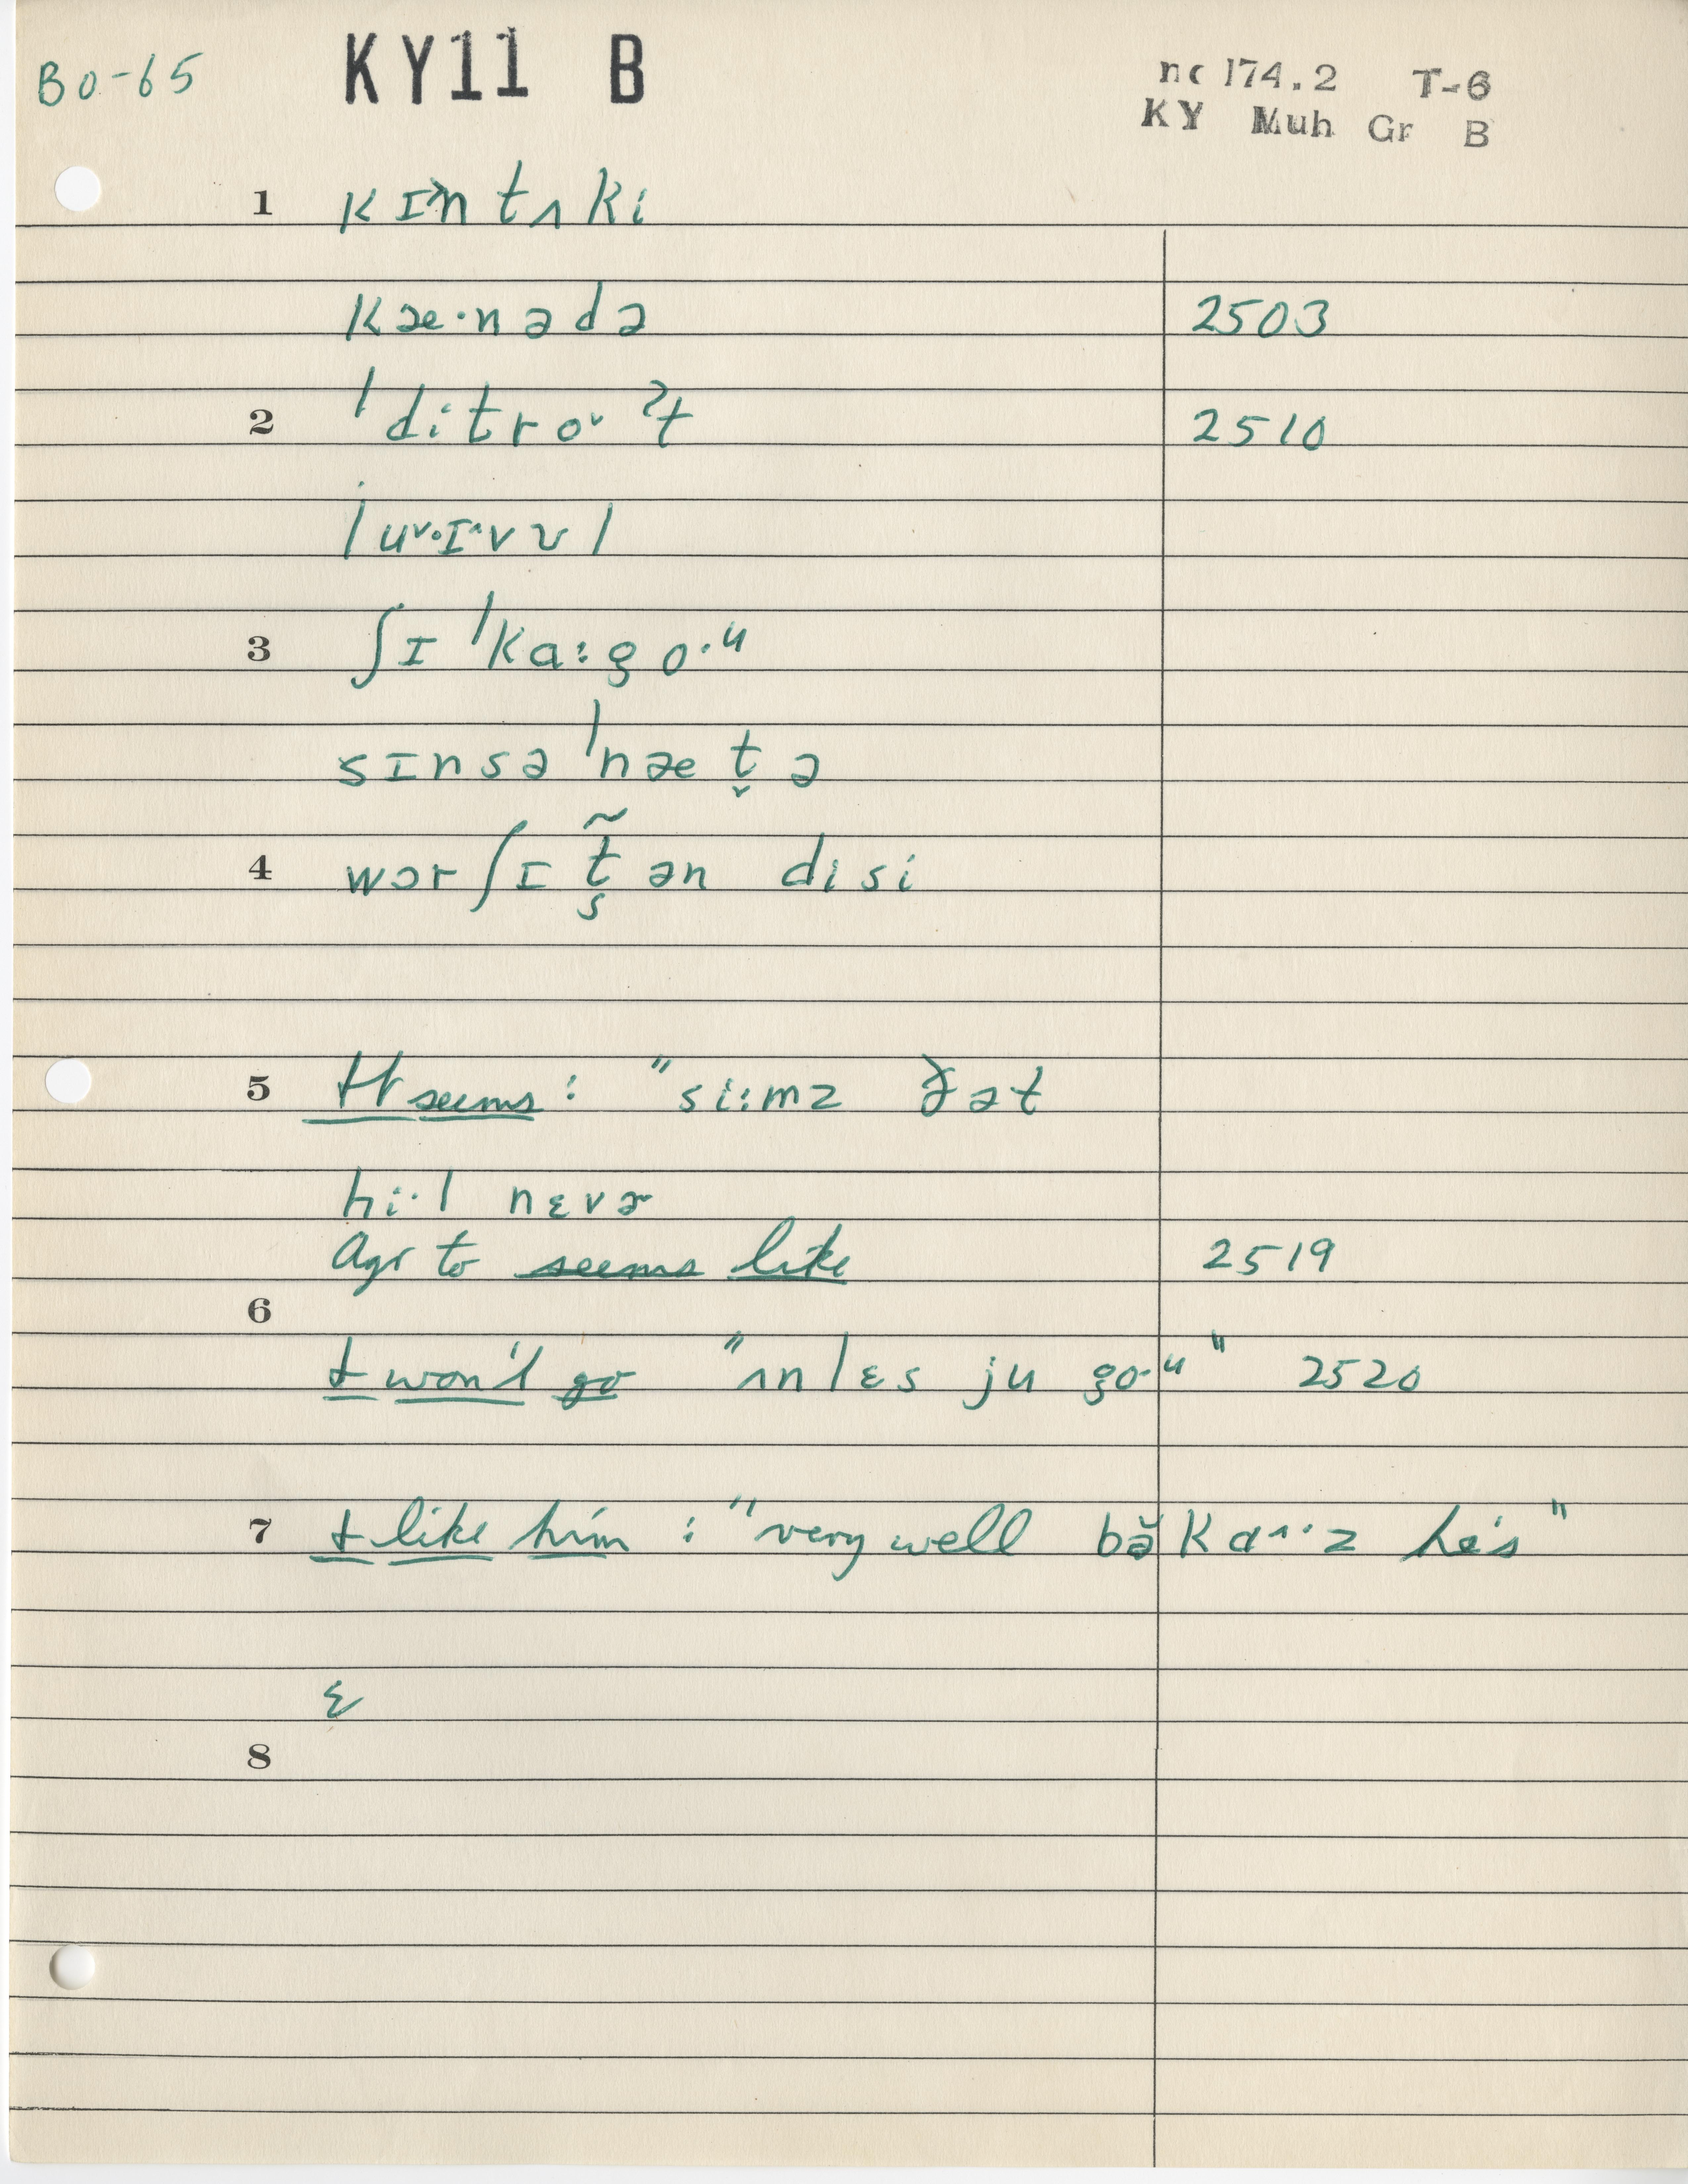 Bo-65 KY11 B nc 174.2 T-6
KY Muh Gr B
1 kɪntʌki
kæ·nədə 2503
2 ˈditroˇɪt 2510
luˇ·ɪ^vʊl
3 ʃɪˈkɑːgo·ᵘ
sɪnsəˈnæt̬ə
4 wɔrʃɪt̬̃ən disi
5 It seems: "siːmz ðət
hi·l nɛvɚ
Agr to seems like 2519
6
I won't go "ʌnlɛs ju go·ᵘ" 2520
7 I like him: "very well bə̆kɑ^·z he's"
ɛ
8